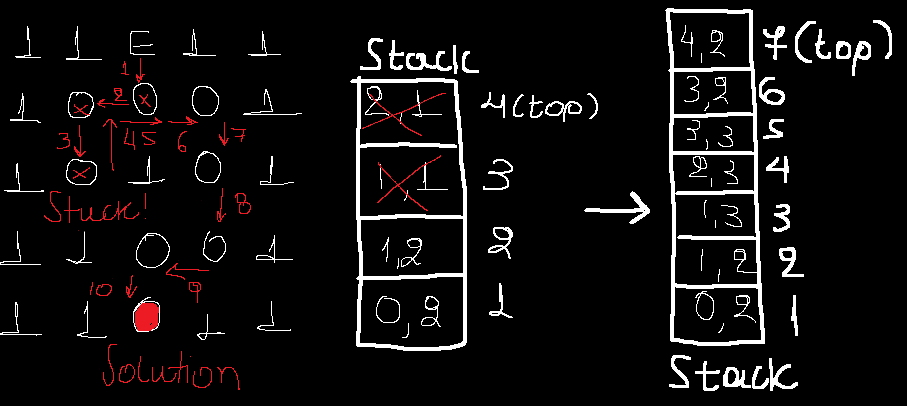 1 1 E 1 1
1
1 x 2 x 0 1
3 4 5 6 7
1 x 1 0 1
Stuck!
8
1 1 0 0 1
10 9
1 1 1 1
Solution
Stack
2,1 4(top)
1,1 3
1,2 2
0,2 1
4,2 7(top)
3,2 6
3,3 5
2,3 4
1,3 3
1,2 2
0,2 1
Stack